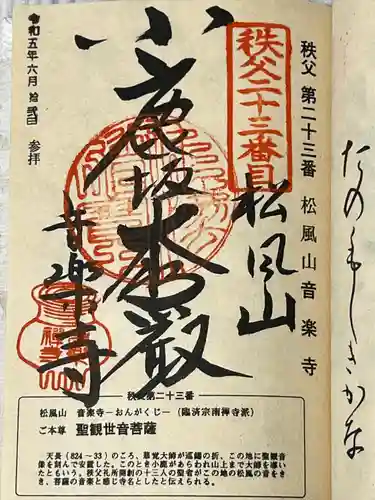 秩父 第二十三番 松風山 音楽寺
秩父二十三番
松風山
小鹿坂
音楽寺
令和五年六月拾弐日 参拝
秩父第二十三番
松風山 音楽寺－おんがくじ－(臨済宗南禅寺派)
ご本尊 聖観世音菩薩
天長(824～33)のころ、慈覚大師が巡錫の折、この地に聖観音
像を刻んで安置した。このとき小鹿があらわれ山上まで大師を導い
たともいう。秩父札所開創の十三人の聖者がこの地の松風の音をき
き、菩薩の音楽と感じ寺名としたと伝えられる。